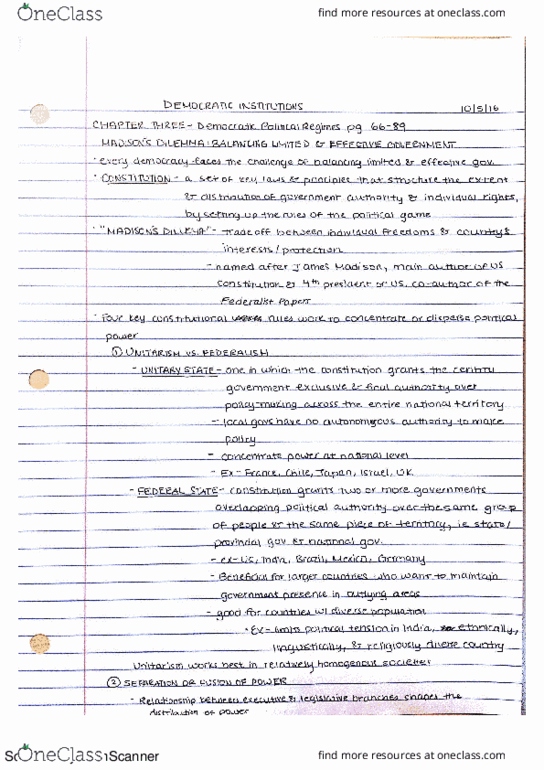 OneClass
find more resources at oneclass.com
DEMOCRATIC INSTITUTIONS 10/5/16
CHAPTER THREE - Democratic Political Regimes pg 66-89
MADISON'S DILEMMA: BALANCING LIMITED & EFFECTIVE GOVERNMENT
· every democracy faces the challenge of balancing limited & effective gov.
· CONSTITUTION - a set of key laws & principles that structure the extent
& distribution of government authority & individual rights,
by setting up the rules of the political game
· "MADISON'S DILEMA" - Tradeoff between individual freedoms & country's
interests/protection
- named after James Madison, main author of US
Constitution & 4th president of US. co-author of the
Federalist Papers
· Four key constitutional rules work to concentrate or disperse political
power
① UNITARISM VS. FEDERALISM
- UNITARY STATE - one in which the constitution grants the central
government exclusive & final authority over
policy-making across the entire national territory
- local govs have no autonomous authority to make
policy
- concentrate power at national level
- Ex - France, Chile, Japan, Israel, UK
- FEDERAL STATE - constitution grants two or more governments
overlapping political authority over the same group
of people & the same piece of territory, ie state/
provincial gov & national gov.
- ex - US, India, Brazil, Mexico, Germany
- Beneficial for larger countries who want to maintain
government presence in outlying areas
- good for countries w/ diverse population
· Ex - limits political tension in India, ethnically,
linguistically, & religiously diverse country
Unitarism works best in relatively homogenous societies
② SEPARATION OR FUSION OF POWER
- Relationship between executive & legislative branches shapes the
distribution of power
OneClass
Scanner
find more resources at oneclass.com